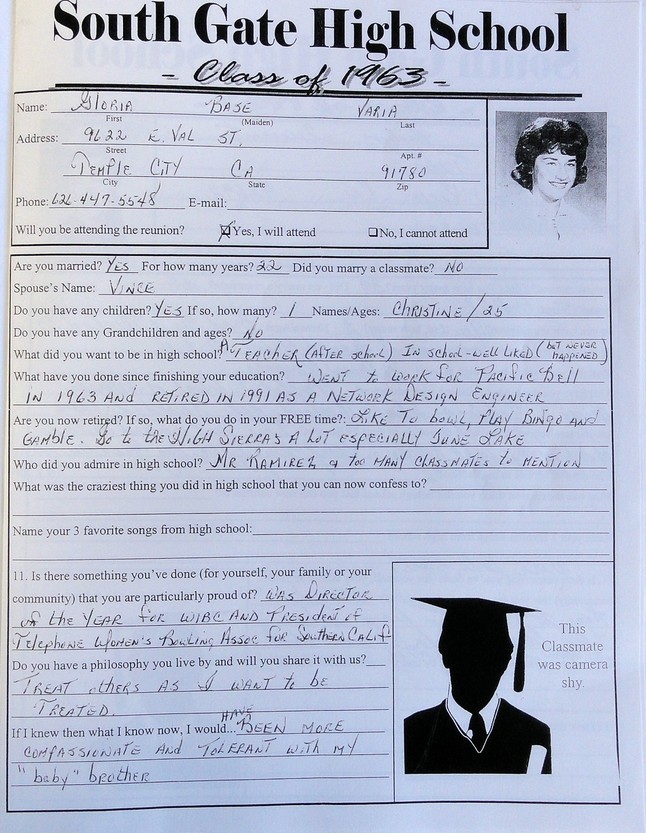 South Gate High School
- Class of 1963 -
Name: Gloria Base Varia
First (Maiden) Last
Address: 9622 E. Val St.
Street Apt. #
Temple City CA 91780
City State Zip
Phone: 626-447-5548 E-mail:
Will you be attending the reunion? ☒Yes, I will attend ☐No, I cannot attend
Are you married? Yes For how many years? 22 Did you marry a classmate? No
Spouse's Name: Vince
Do you have any children? Yes If so, how many? 1 Names/Ages: Christine / 25
Do you have any Grandchildren and ages? No
What did you want to be in high school? A Teacher (After school) In school - well liked (but never happened)
What have you done since finishing your education? Went to work for Pacific Bell
in 1963 and retired in 1991 as a Network Design Engineer
Are you now retired? If so, what do you do in your FREE time?: Like to bowl, play Bingo and
gamble. Go to the High Sierras a lot especially June Lake
Who did you admire in high school? Mr Ramirez & too many classmates to mention
What was the craziest thing you did in high school that you can now confess to?
Name your 3 favorite songs from high school:
11. Is there something you've done (for yourself, your family or your
community) that you are particularly proud of? Was Director
of the Year for WIBC and President of
Telephone Women's Bowling Assoc for Southern Calif
Do you have a philosophy you live by and will you share it with us?
Treat others as I want to be
treated.
If I knew then what I know now, I would... have been more
compassionate and tolerant with my
"baby" brother
This
Classmate
was camera
shy.